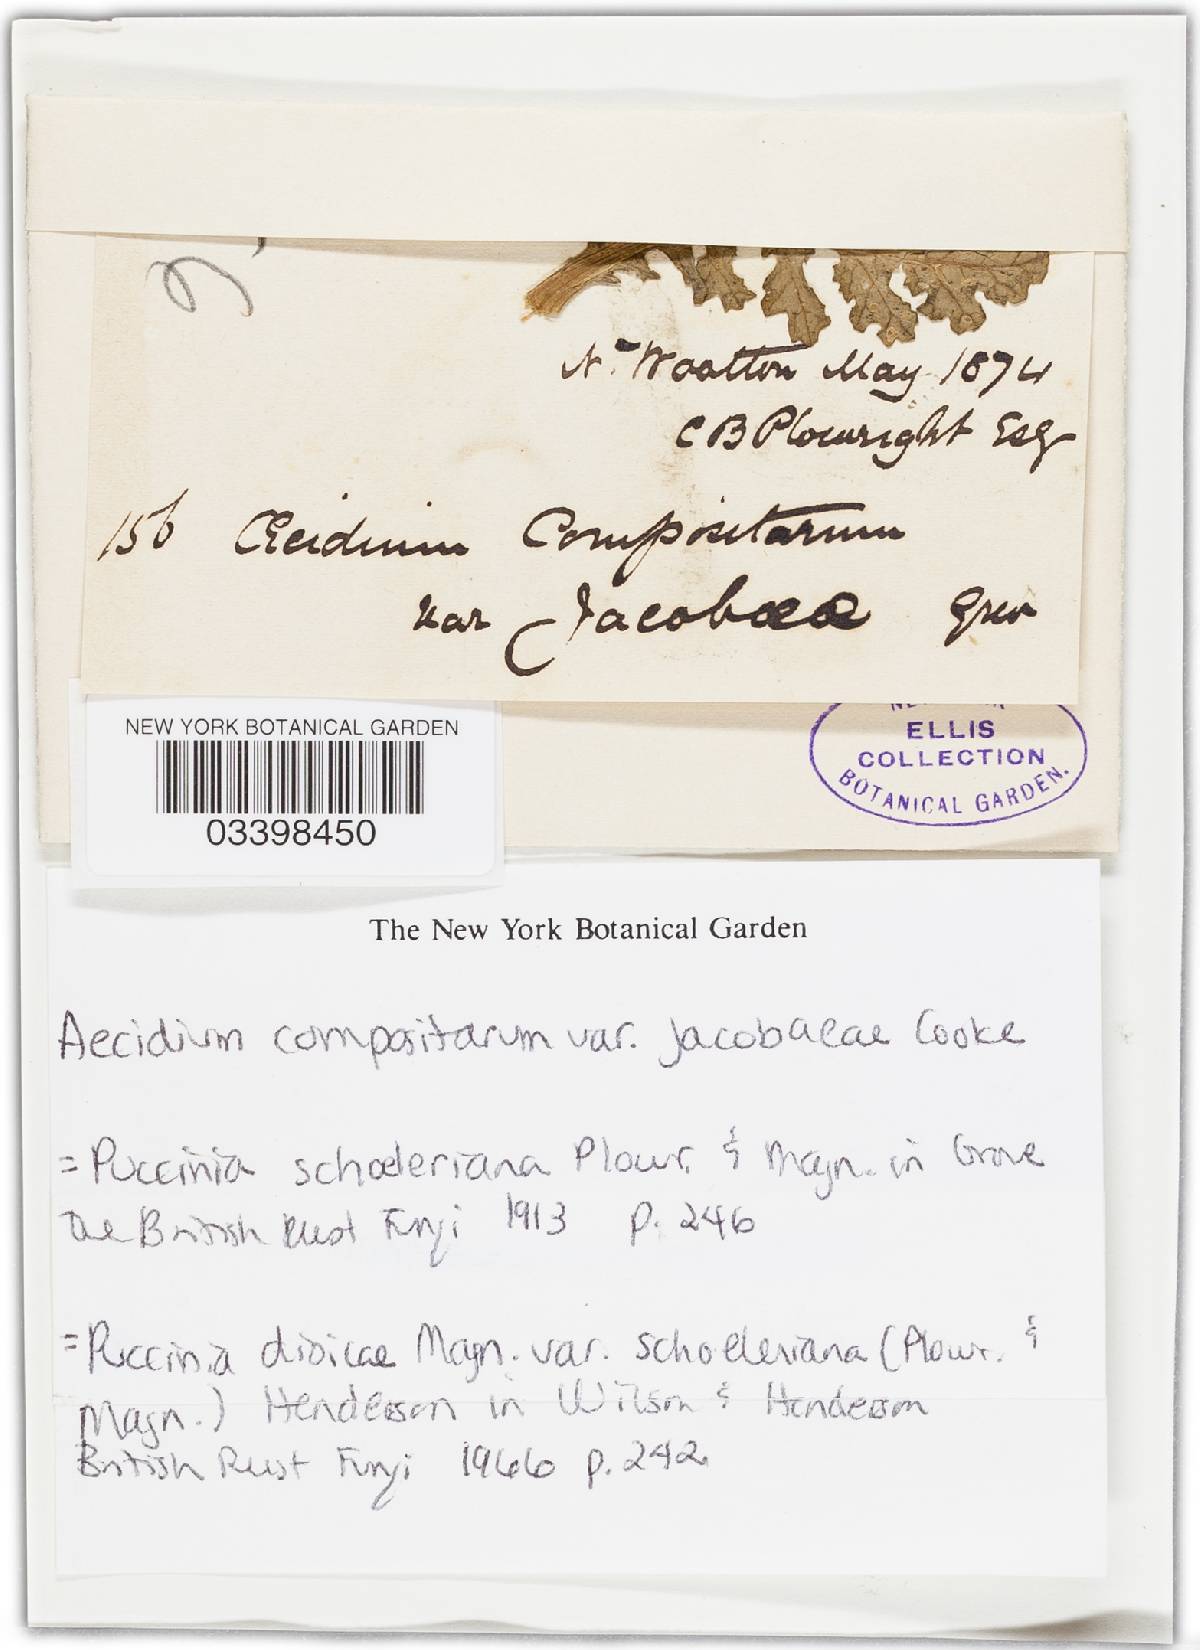 N. Wootton May 1874
C B Plowright Esq
156 Œcidium Compositarum
var Jacobææ Grev
NEW YORK BOTANICAL GARDEN
03398450
ELLIS
COLLECTION
BOTANICAL GARDEN.
The New York Botanical Garden
Aecidium compositarum var. Jacobaeae Cooke
= Puccinia schoeleriana Plowr. & Magn. in Grove
The British Rust Fungi 1913 p. 246
= Puccinia dioicae Magn. var. schoeleriana (Plowr. &
Magn.) Henderson in Wilson & Henderson
British Rust Fungi 1966 p. 242